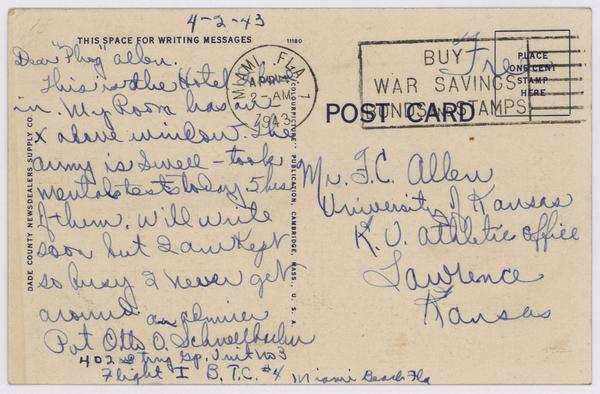 4-2-43
THIS SPACE FOR WRITING MESSAGES
11180
Dear "Phog" Allen.
This is the Hotel I live
in. My Room has an
X above window. The
army is Swell - took
mental tests today 5 hrs
of them. Will write
soon but I am kept
so busy I never get
around. an admirer
Pvt Otto O. Schnellbacher
402nd Tng Gp. Unit No 3
Flight I B.T.C. #4 Miami Beach Fla
DADE COUNTY NEWSDEALERS SUPPLY CO.
"COLOURPICTURE" PUBLICATION, CAMBRIDGE, MASS., U. S. A.
MIAMI, FLA. 1
APR
AM
1943
BUY
WAR SAVINGS
BONDS AND STAMPS
Free
PLACE
ONE CENT
STAMP
HERE
POST CARD
Mr. F.C. Allen
University of Kansas
K.U. Athletic Office
Lawrence
Kansas